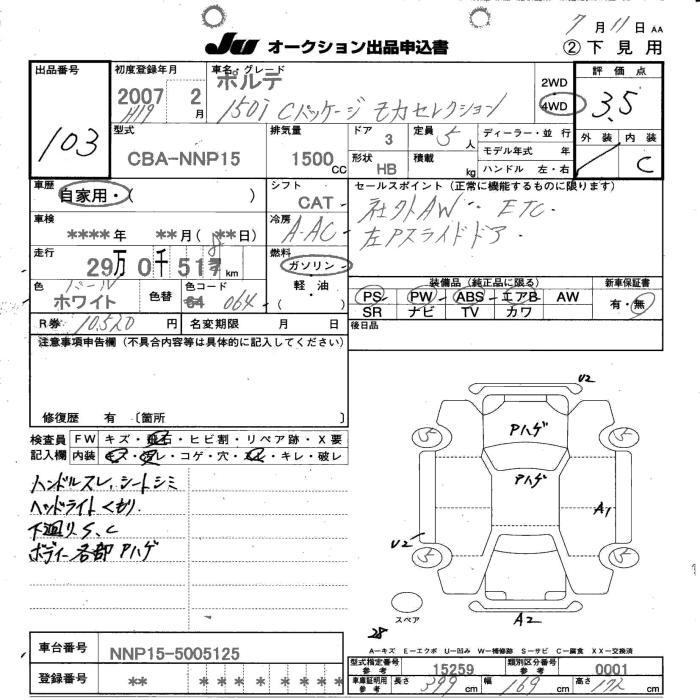 7月11日 AA
JU オークション出品申込書
②下見用
出品番号
103
初度登録年月
2007 2月
H19
車名・グレード
ポルテ
150i Cパッケージ モカセレクション
2WD
4WD
評価点
3.5
外装 内装
C
型式
CBA-NNP15
排気量
1500 CC
ドア
3
定員
5人
形状
HB
積載
kg
ディーラー・並行
モデル年式 年
ハンドル 左・右
車歴
自家用・( )
シフト
CAT
セールスポイント(正常に機能するものに限ります)
社外AW・ ETC・
左Pスライドドア・
車検
****年 **月(**日)
冷房
A-AC
走行
29万0千517km
8
燃料
ガソリン・
軽・油
( )
色
パール
ホワイト
色替
色コード
64
064
装備品(純正品に限る)
PS PW ABS エアB AW
SR ナビ TV カワ
新車保証書
有・無
R券 10520円
名変期限 月 日
後日品
注意事項申告欄(不具合内容等は具体的に記入してください)
修復歴 有〔箇所 〕
検査員 FW キズ・飛石・ヒビ割・リペア跡・X要
記入欄 内装 キズ・汚レ・コゲ・穴・スレ・キレ・破レ
ハンドルスレ、シートシミ
ヘッドライトくもり
下廻りS、C
ボディー各部アハゲ
U2
アハゲ
5 5
アハゲ
A1
U2
5 5
スペア
A2
28
A-キズ E-エクボ U-凹み W-補修跡 S-サビ C-腐食 XX-交換済
車台番号
NNP15-5005125
登録番号
** * * * * * * *
型式指定番号
参考
15259
類別区分番号
参考
0001
車庫証明用
参考
長さ 399 cm 幅 169 cm 高さ 172 cm